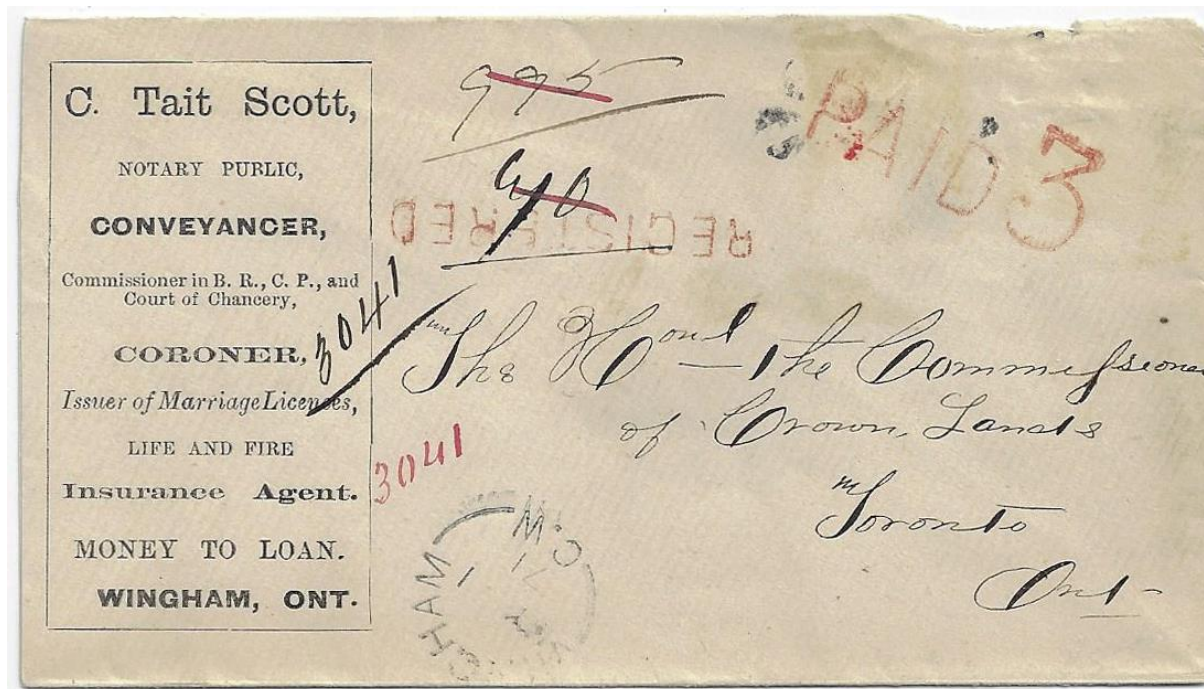 C. Tait Scott,
NOTARY PUBLIC,
CONVEYANCER,
Commissioner in B. R., C. P., and
Court of Chancery,
CORONER,
Issuer of Marriage Licenses,
LIFE AND FIRE
Insurance Agent.
MONEY TO LOAN.
WINGHAM, ONT.
995
910
REGISTERED
PAID 3
3041
3041
The Honl the Commissioner
of Crown Lands
Toronto
Ont
HAM C.W